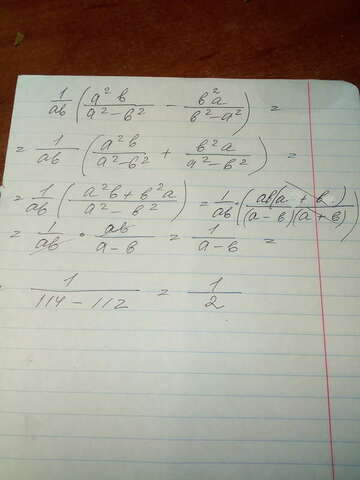 1/ab (a²b/a²-b² - b²a/b²-a²) =
= 1/ab (a²b/a²-b² + b²a/a²-b²) =
= 1/ab (a²b+b²a/a²-b²) = 1/ab · (ab(a+b)/(a-b)(a+b))
= 1/ab · ab/a-b = 1/a-b =
1/114-112 = 1/2